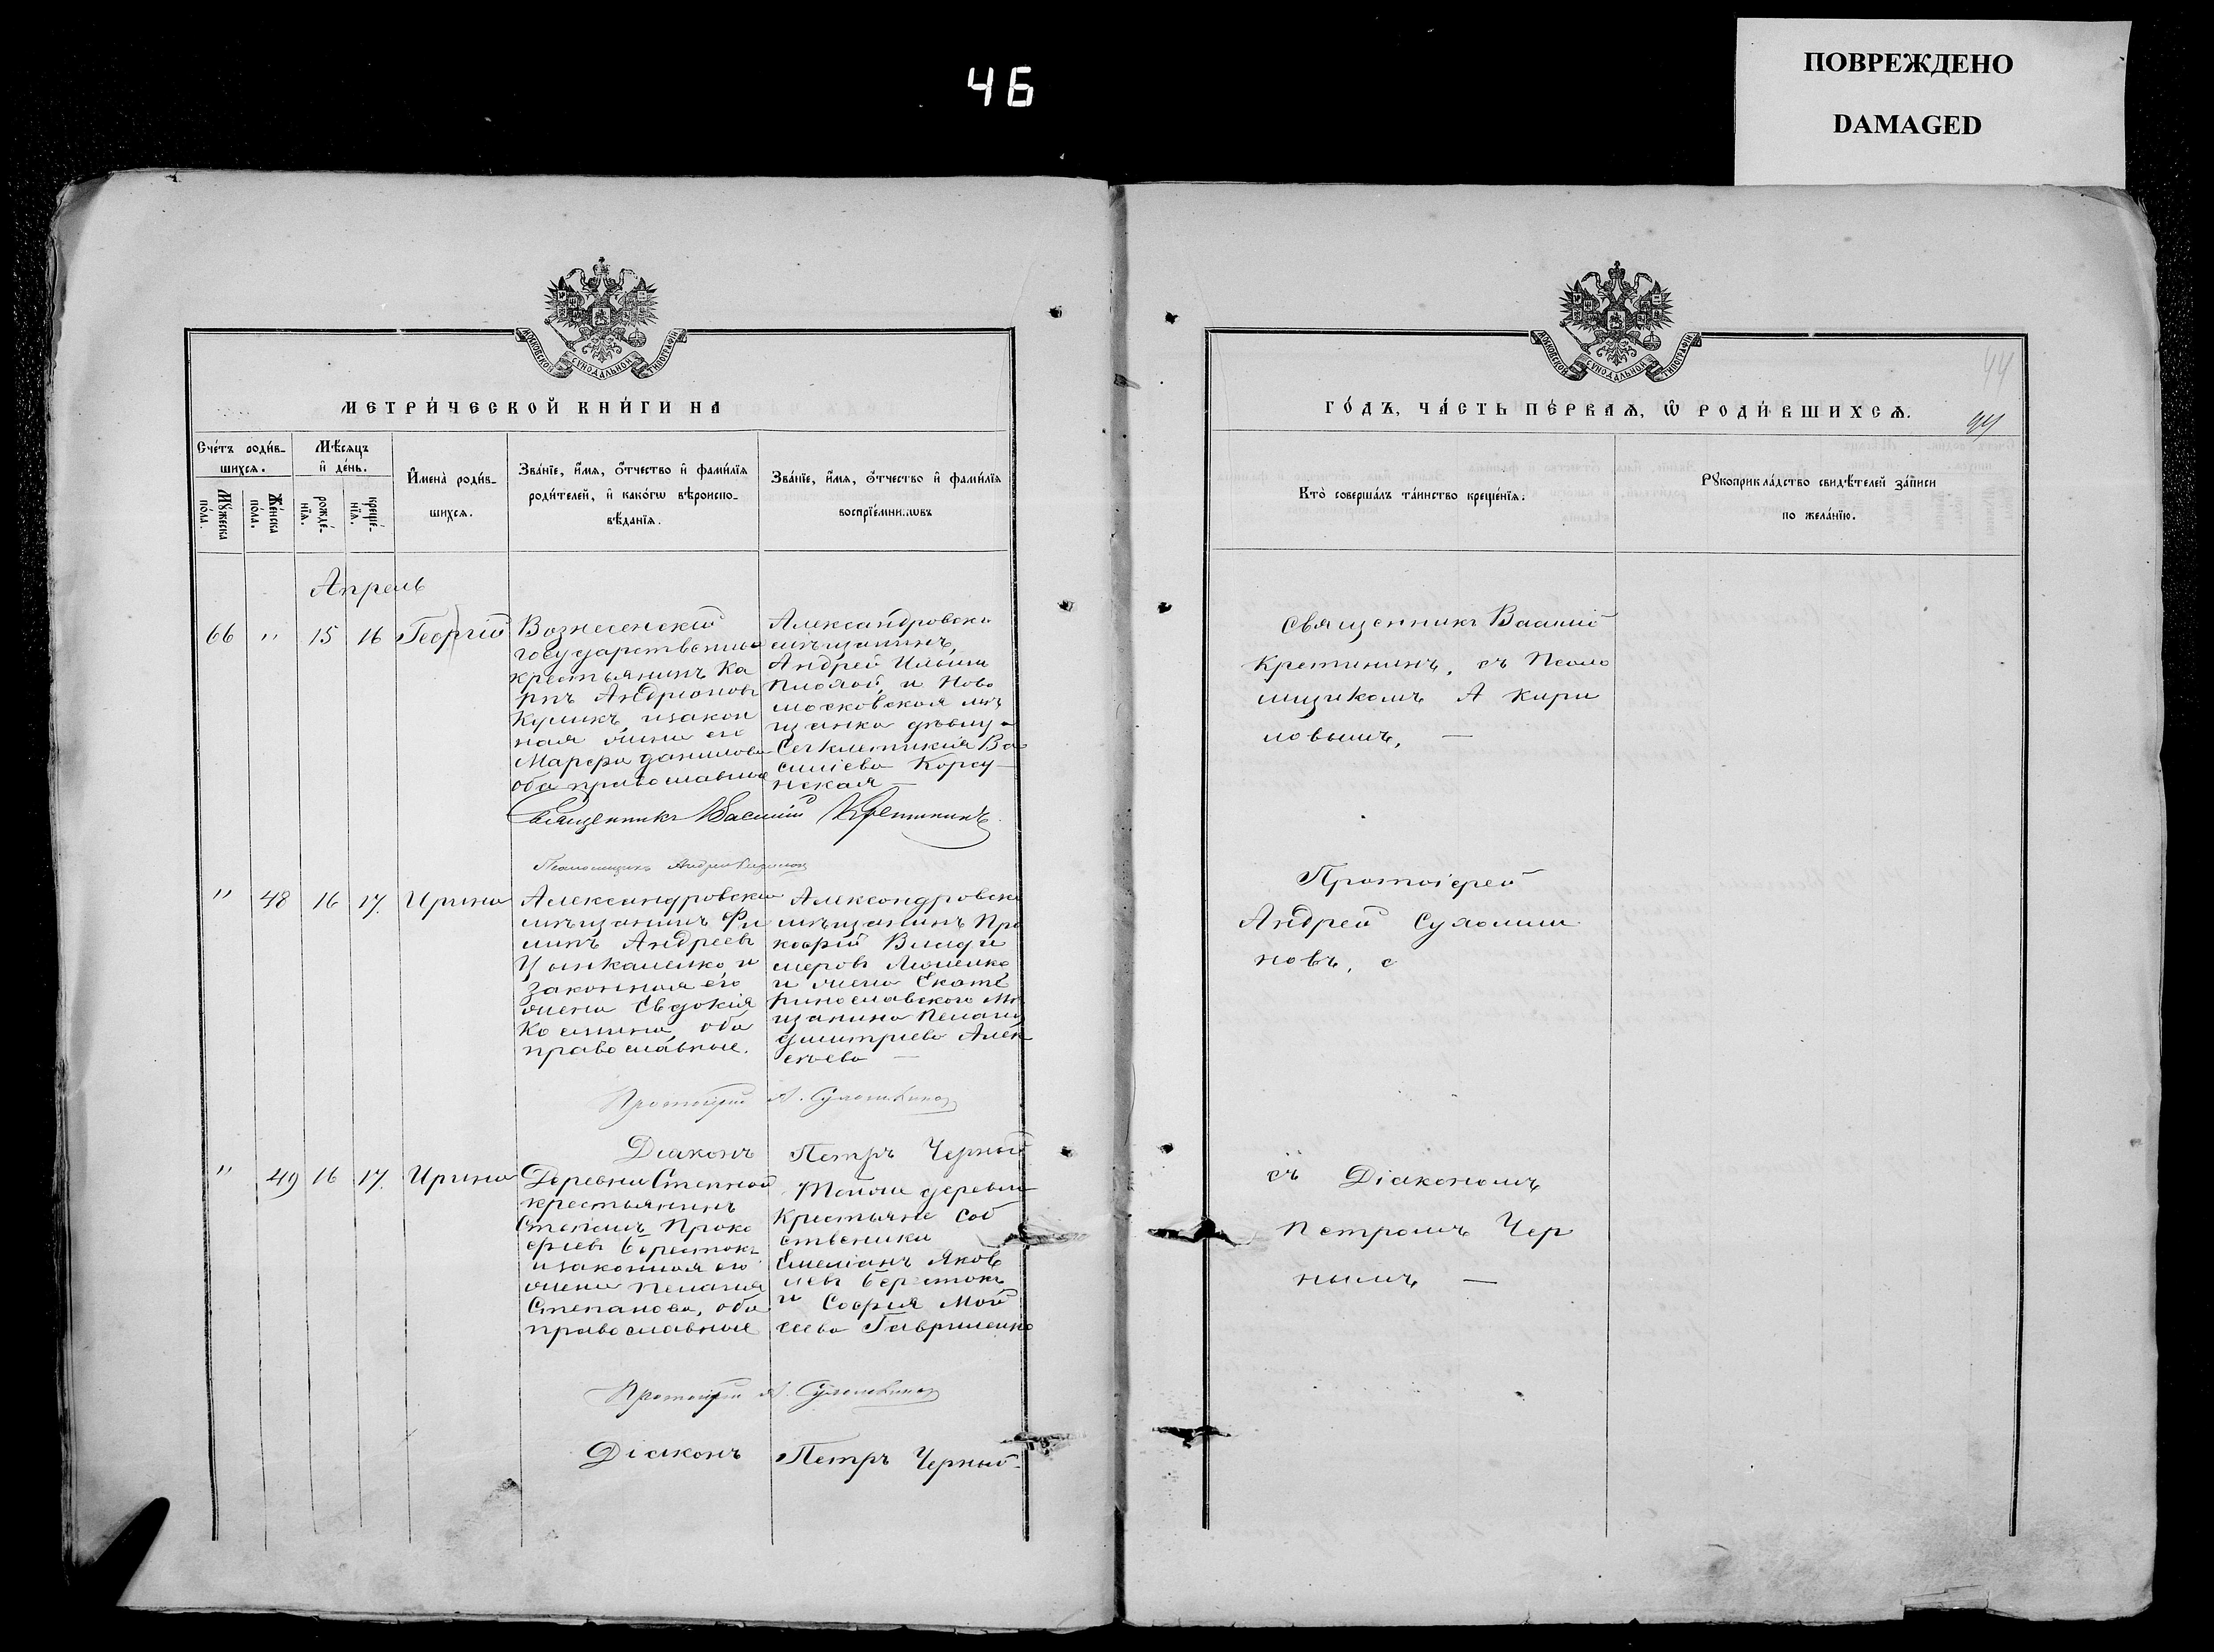 46
ПОВРЕЖДЕНО
DAMAGED
МОСКОВСКОЙ СѴНОДАЛЬНОЙ ТИПОГРАФІИ
МЕТРИ́ЧЕСКОЙ КНИ́ГИ НА
Сче́тъ роди́в-
шихся.
Мѣ́сяцъ
и҆ де́нь.
Мꙋ́жеска
по́ла.
Же́нска
по́ла.
рожде́-
нїѧ.
креще́-
нїѧ.
И҆мена̀ роди́в-
шихся.
Зва́нїе, и҆́мѧ, ѻ҆́тчество и҆ фами́лїѧ
роди́телей, и҆ како́гѡ вѣроиспо-
вѣ́данїѧ.
Зва́нїе, и҆́мѧ, ѻ҆́тчество и҆ фами́лїѧ
воспрїе́мниковъ
Апрель
66 " 15 16 Георгій
Вознесенскій
государственный
крестьянинъ Ка
рпъ Андріоновъ
Куликъ изакон
ная жена его
Марфа данилова
оба православные
Александровски
мѣщанинъ,
Андрей Ильинъ
и Ново
московская мѣ
щанка дѣвица
Сегклитикія Ва
силіева Корсу
нская
Священникъ Василій Кретининъ
Псаломщикъ Андрей Кириловъ
" 48 16 17. Ирина
Александровскій
мѣщанинъ Фи
липъ Андреевъ
Цынкаленко, и
законная его
жена Евдокія
Косьмина, оба
православные.
Александровскі
мѣщанинъ Про
кофій Влади
меровъ
и жена Екате
ринославского Мѣ
щанина Пелагія
дмитріева Алек
сѣева —
Протоіерей А. Сухомлиновъ
Діаконъ Петръ Черный
" 49 16 17. Ирина
Деревни Степной
крестьянинъ
Стефанъ Проко
фіевъ Берестокъ
изаконная его
жена Пелагія
Степанова, оба
православные
Тойже деревни
Крестьяне Соб
ственики
Емеліанъ Яков
левъ Берестокъ
и Софія Мой
сеева Гавриленко
Протоіерей А. Сухомлиновъ
Діаконъ Петръ Черный
МОСКОВСКОЙ СѴНОДАЛЬНОЙ ТИПОГРАФІИ
44
ГО́ДЪ, ЧА́СТЬ ПЕ́РВАѦ, Ѽ РОДИ́ВШИХСѦ.
44
Кто̀ соверша́лъ та́инство креще́нїѧ.
Рꙋкоприкла́дство свидѣ́телей за́писи
по жела́нїю.
Священникъ Василій
Кретининъ, съ Псало
мщикомъ А Кири
ловымъ, —
Протоіерей
Андрей Сухомли
новъ, с
съ Діакономъ
Петромъ Чер
нымъ —